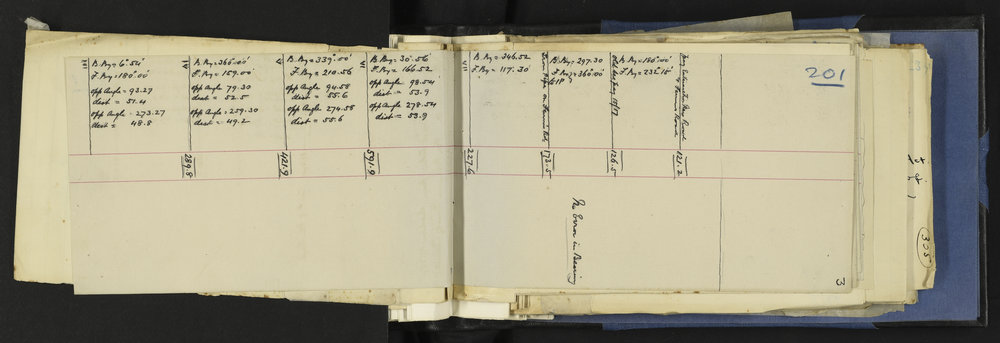 III
B. Brg = 6°.54'
F. Brg = 180°.00'
opp Angle = 93.27
dist = 51.4
opp Angle = 273.27
dist = 48.8
IV
B. Brg 360°.00'
F. Brg = 159.00
opp Angle 79.30
dist = 52.5
opp Angle = 259.30
dist = 49.2
289.8
V
B. Brg = 339.00
F. Brg = 210.56
opp Angle 94.58
dist = 55.6
opp Angle 274.58
dist = 55.6
421.9
VI
B. Brg = 30°.56
F. Brg = 166.52
opp Angle 98.54
dist = 53.9
opp Angle 278.54
dist = 53.9
591.9
VII
B. Brg = 346.52
F. Brg = 117.30
227.6
Iron Pipe on
173.5
B. Brg = 297.30
F. Brg = 360°.00'
126.5
B. Brg = 180°.00'
F. Brg = 232°.15'
Road
121.2
No Error in Bearing
201
3
305